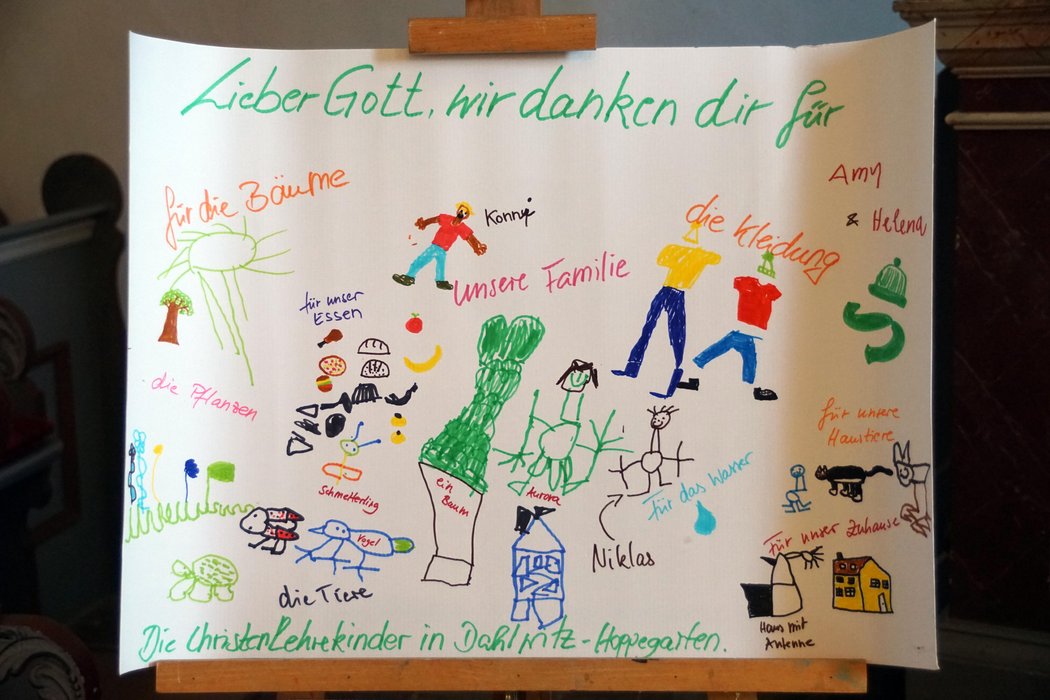 Lieber Gott, wir danken dir für
für die Bäume
Amy
& Helena
Konny
die Kleidung
unsere Familie
für unser
Essen
die Pflanzen
für unsere
Haustiere
Schmetterling
ein
Baum
Aurora
Für das Wasser
Vogel
Niklas
Für unser Zuhause
die Tiere
Haus mit
Antenne
Die Christenlehrekinder in Dahlwitz-Hoppegarten.